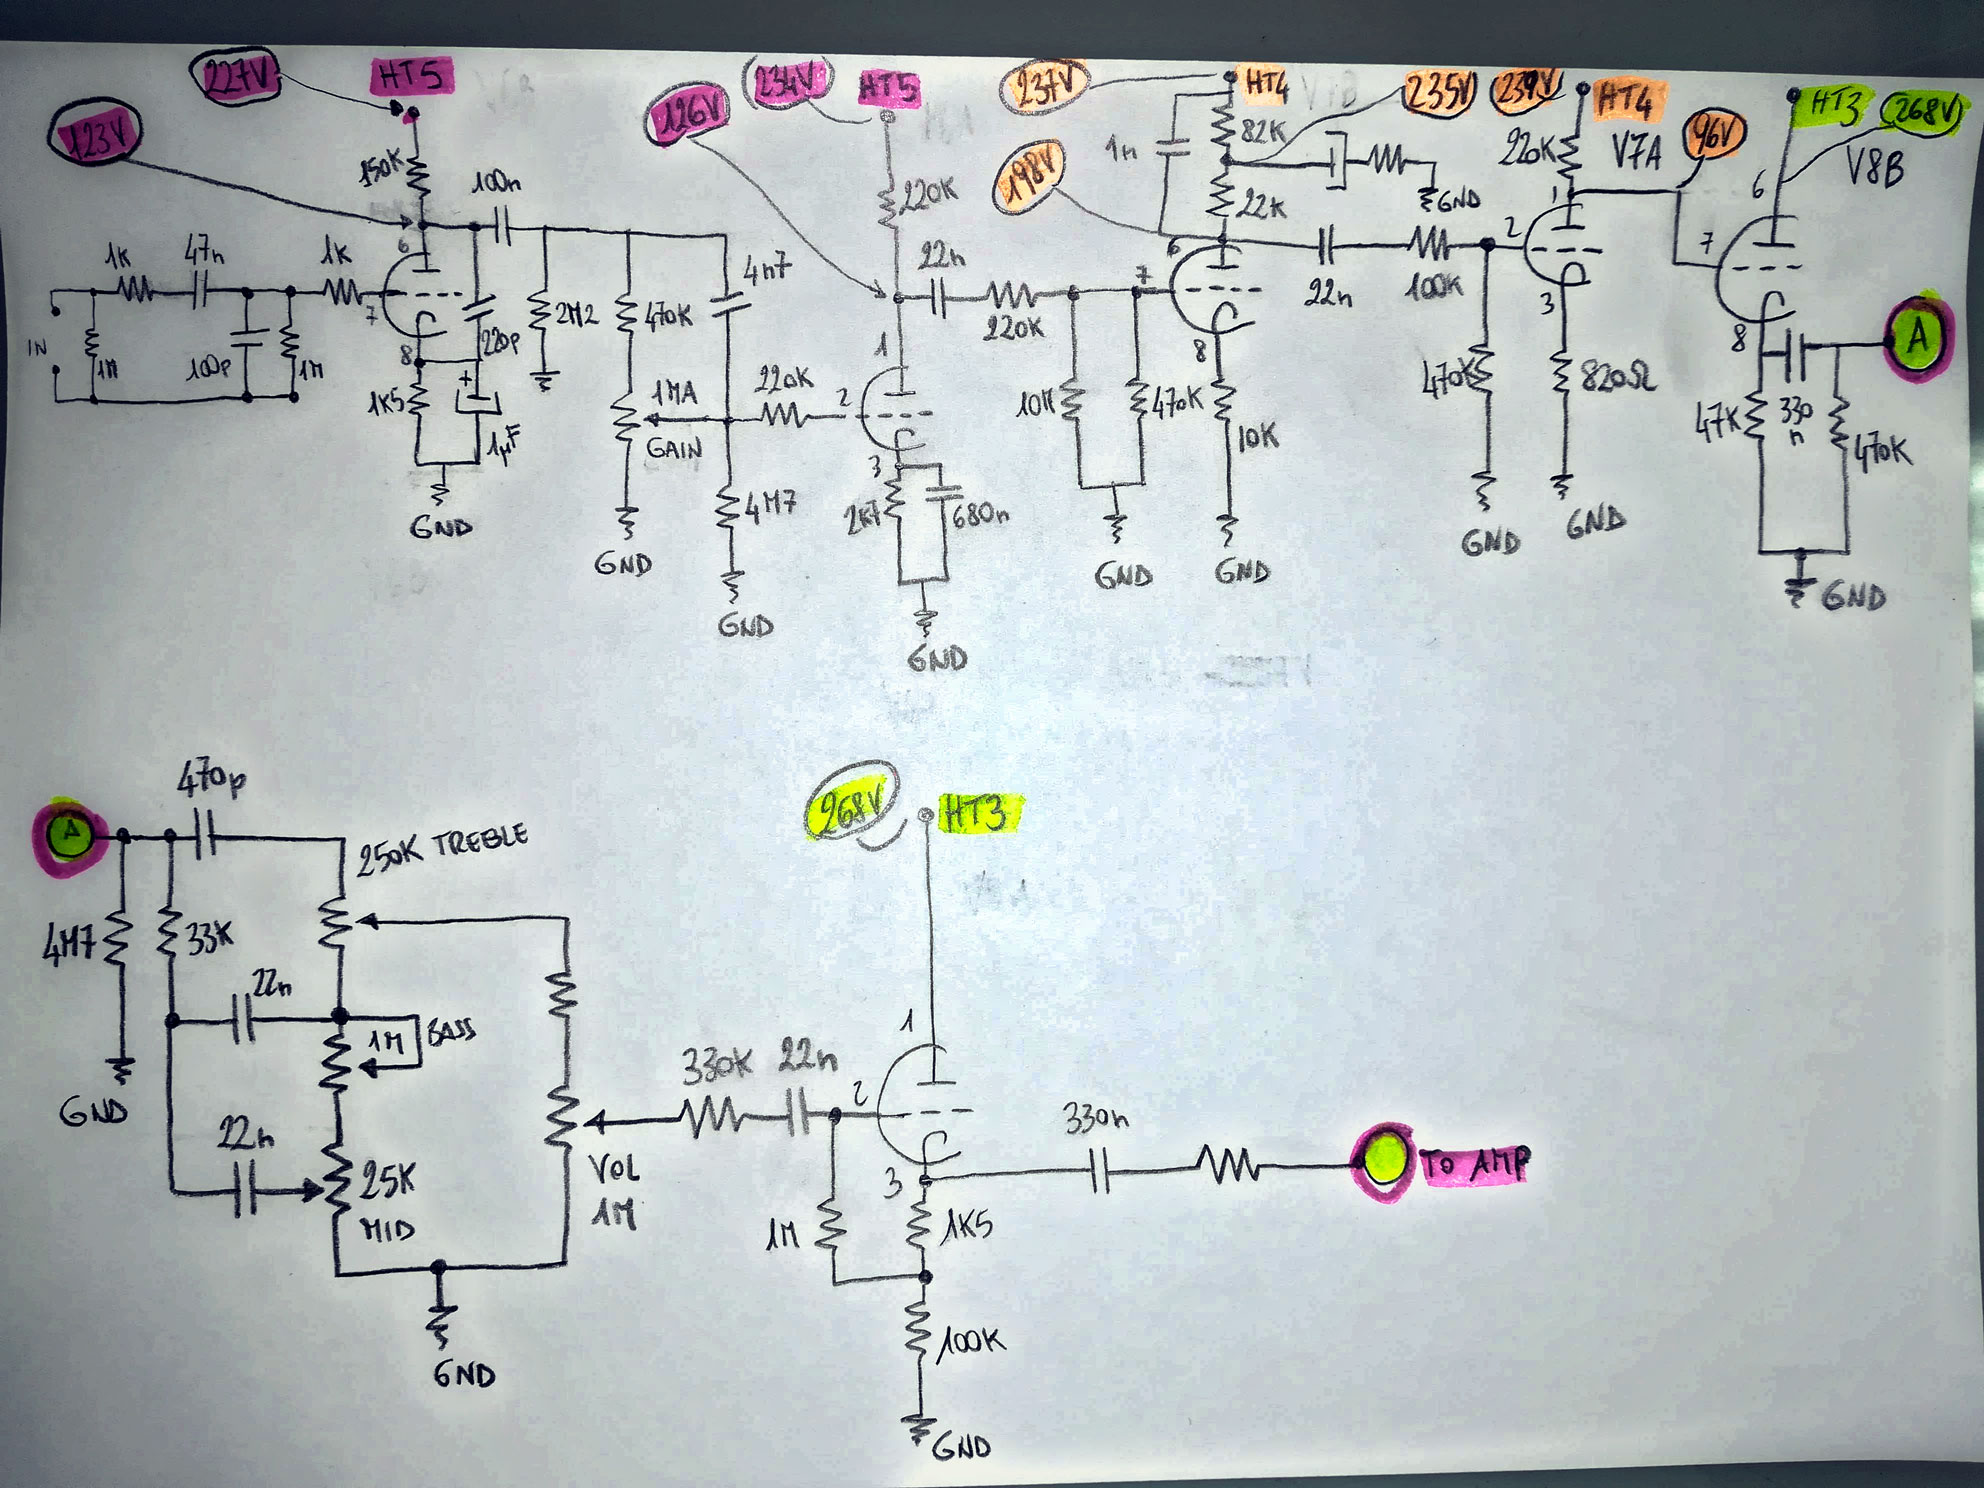 227V
HT5
123V
150K
100n
1K
47n
1K
6
7
8
IN
1M
100p
1M
1K5
220p
+
1µF
GND
2M2
470K
4n7
1MA
GAIN
GND
220K
4M7
GND
126V
234V
HT5
220K
22n
220K
1
2
3
2K7
680n
GND
10M
470K
GND
237V
HT4
1n
82K
235V
GND
198V
22K
6
7
8
10K
GND
22n
100K
470K
GND
239V
HT4
220K
V7A
1
2
3
820Ω
GND
96V
HT3
268V
V8B
6
7
8
47K
330
n
470K
GND
A
A
470p
250K TREBLE
4M7
33K
GND
22n
1M
BASS
22n
25K
MID
GND
VOL
1M
330K
22n
268V
HT3
1
2
3
1M
1K5
100K
GND
330n
TO AMP